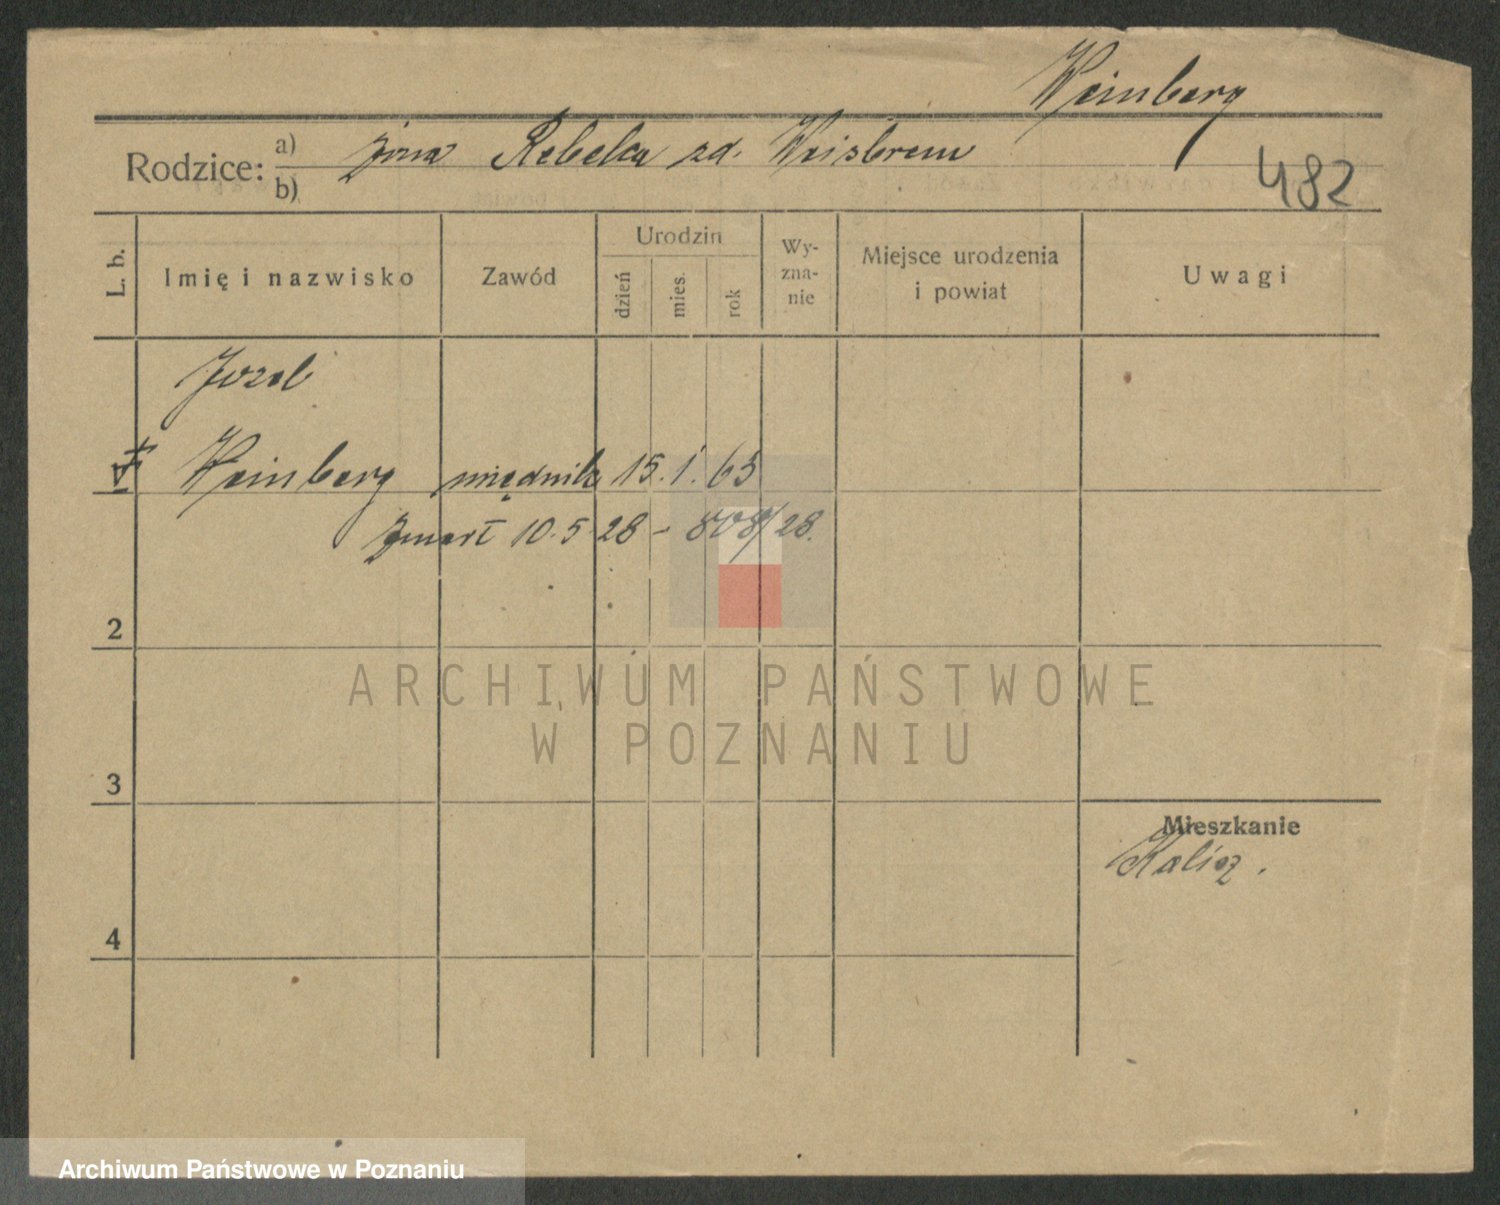 Weinberg
Rodzice: a) żona Rebeka zd. Weisbrem
b)
482
L. b.
Imię i nazwisko
Zawód
Urodzin
dzień
mies.
rok
Wy-
zna-
nie
Miejsce urodzenia
i powiat
Uwagi
Jozel
1 Weinberg 15. 1. 65
Zmarł 10. 5. 28 – 808/28.
2
ARCHIWUM PAŃSTWOWE
W POZNANIU
3
Mieszkanie
Kalisz.
4
Archiwum Państwowe w Poznaniu